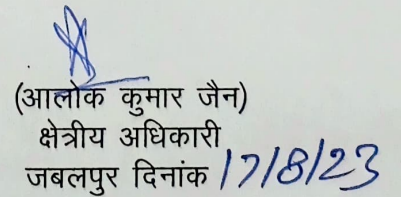 (आलोक कुमार जैन)
क्षेत्रीय अधिकारी
जबलपुर दिनांक 17/8/23